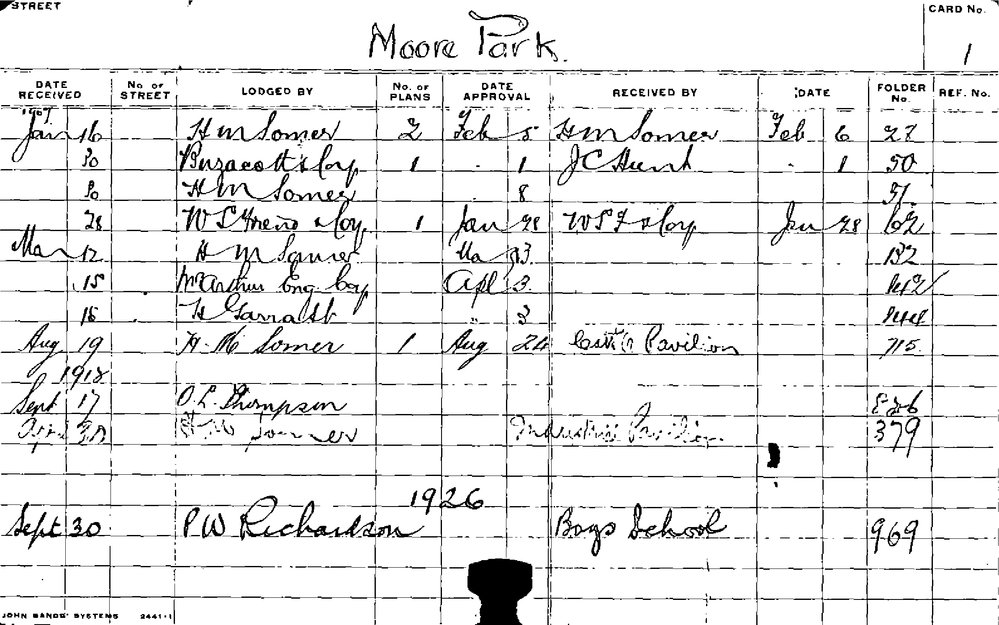 STREET CARD No.
Moore Park. 1
DATE RECEIVED No. OF STREET LODGED BY No. OF PLANS DATE APPROVAL RECEIVED BY DATE FOLDER No. REF. No.
Jan 16 H M Somer 2 Feb 5 H M Somer Feb 6 27
30 Buzacott & Coy 1 . 1 J C Hunt . 1 50
30 H M Somer 8 51
28 W S Friend & Coy 1 Jan 28 W S F & Coy Jan 28 62
Mar 12 H M Somer Ma 13 132
15 McArthur Eng Coy Apl 3 142
15 H Garratt " 3 144
Aug 19 H. M Somer 1 Aug 24 Pavilion 715
1918
Sept 17 O. L. Thompson
30 H M Somer Industrial Pavilion 379
1926
Sept 30 P W Richardson Boys School 969
JOHN SANDS' SYSTEMS 2441-1